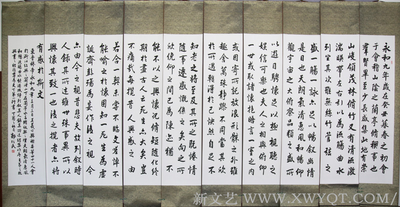 永和九年歲在癸丑暮春之初會
于會稽山陰之蘭亭修禊事也
羣賢畢至少長咸集此地有崇
山峻領茂林脩竹又有清流激
湍暎帶左右引以為流觴曲水
列坐其次雖無絲竹管弦之
盛一觴一詠亦足以暢敘幽情
是日也天朗氣清惠風和暢仰
觀宇宙之大俯察品類之盛所
以遊目騁懷足以極視聽之
娛信可樂也夫人之相與俯仰
一世或取諸懷抱悟言一室之內
或因寄所託放浪形骸之外雖
趣舍萬殊靜躁不同當其欣
於所遇暫得於己快然自足不
知老之將至及其所之既惓情
隨事遷感慨係之矣向之所
欣俛仰之間已為陳迹猶不
能不以之興懷況脩短隨化終
期於盡古人云死生亦大矣豈
不痛哉每攬昔人興感之由
若合一契未嘗不臨文嗟悼不
能喻之於懷固知一死生為虛
誕齊彭殤為妄作後之視今
亦由今之視昔悲夫故列敘時
人錄其所述雖世殊事異所以
興懷其致一也後之攬者亦將
有感於斯文
新文艺 WWW.XWYOT.COM